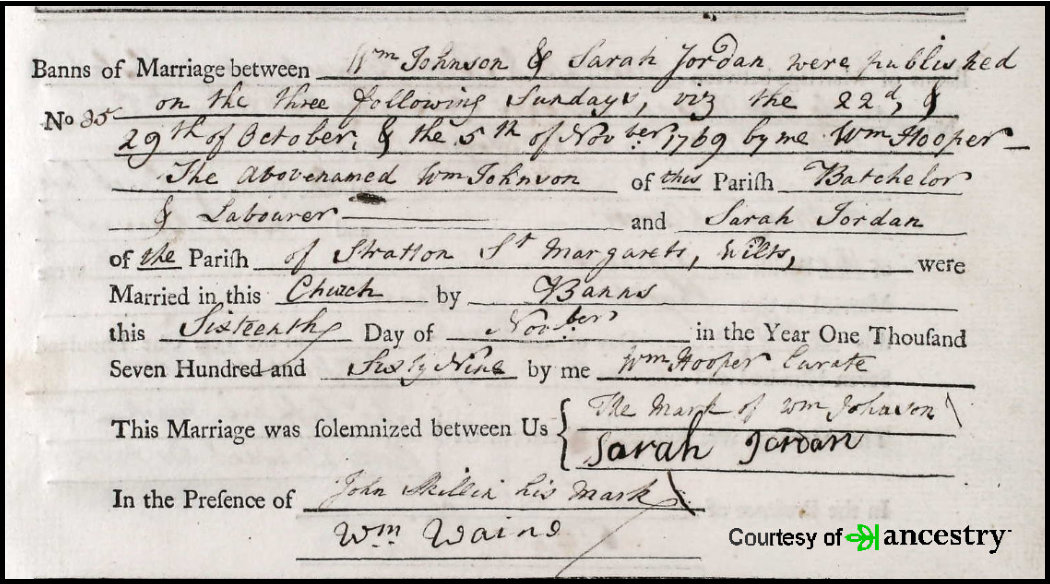 Banns of Marriage between Wm Johnson & Sarah Jordan were published
No 35 on the three following Sundays, viz the 22d, &
29th of October, & the 5th of Novber 1769 by me Wm Hooper
The abovenamed Wm Johnson of this Pariſh Batchelor
& Labourer and Sarah Jordan
of the Pariſh of Stratton St Margarets, Wilts, were
Married in this Church by Banns
this Sixteenth Day of Novber in the Year One Thouſand
Seven Hundred and Sixty Nine by me Wm Hooper Curate
This Marriage was ſolemnized between Us { The Mark of Wm Johnson \
Sarah Jordan
In the Preſence of John Skillin his mark \
Wm Waine
Courtesy of ancestry